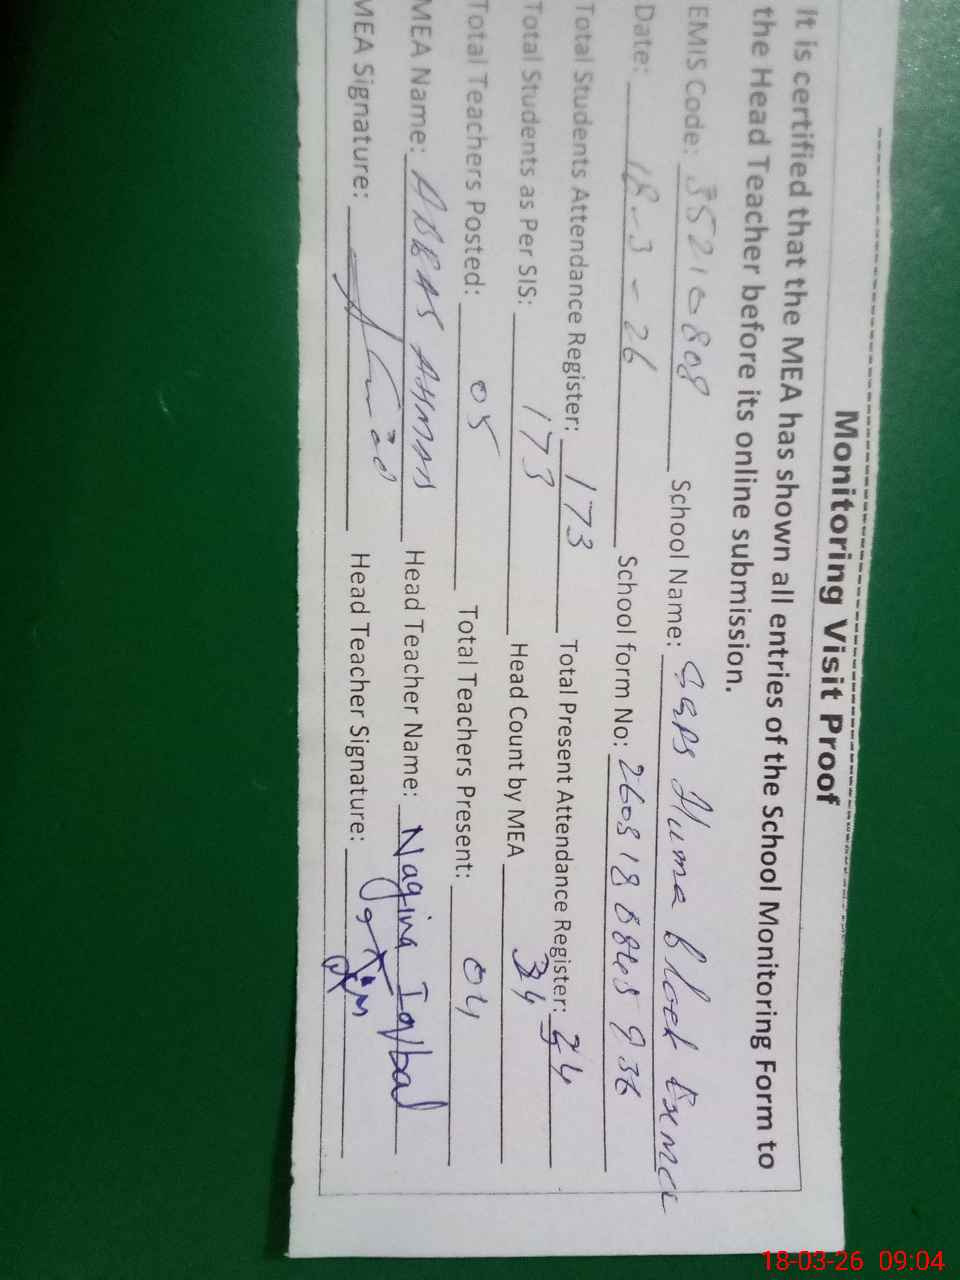 Monitoring Visit Proof
It is certified that the MEA has shown all entries of the School Monitoring Form to
the Head Teacher before its online submission.
EMIS Code: 35210808 School Name: GGPS Huma Block
Date: 18-3-26 School form No:
Total Students Attendance Register: 173 Total Present Attendance Register: 34
Total Students as Per SIS: 173 Head Count by MEA 34
Total Teachers Posted: 05 Total Teachers Present: 04
MEA Name: ABBAS AHMAD Head Teacher Name: Nagina Iqbal
MEA Signature: Head Teacher Signature:
18-03-26 09:04